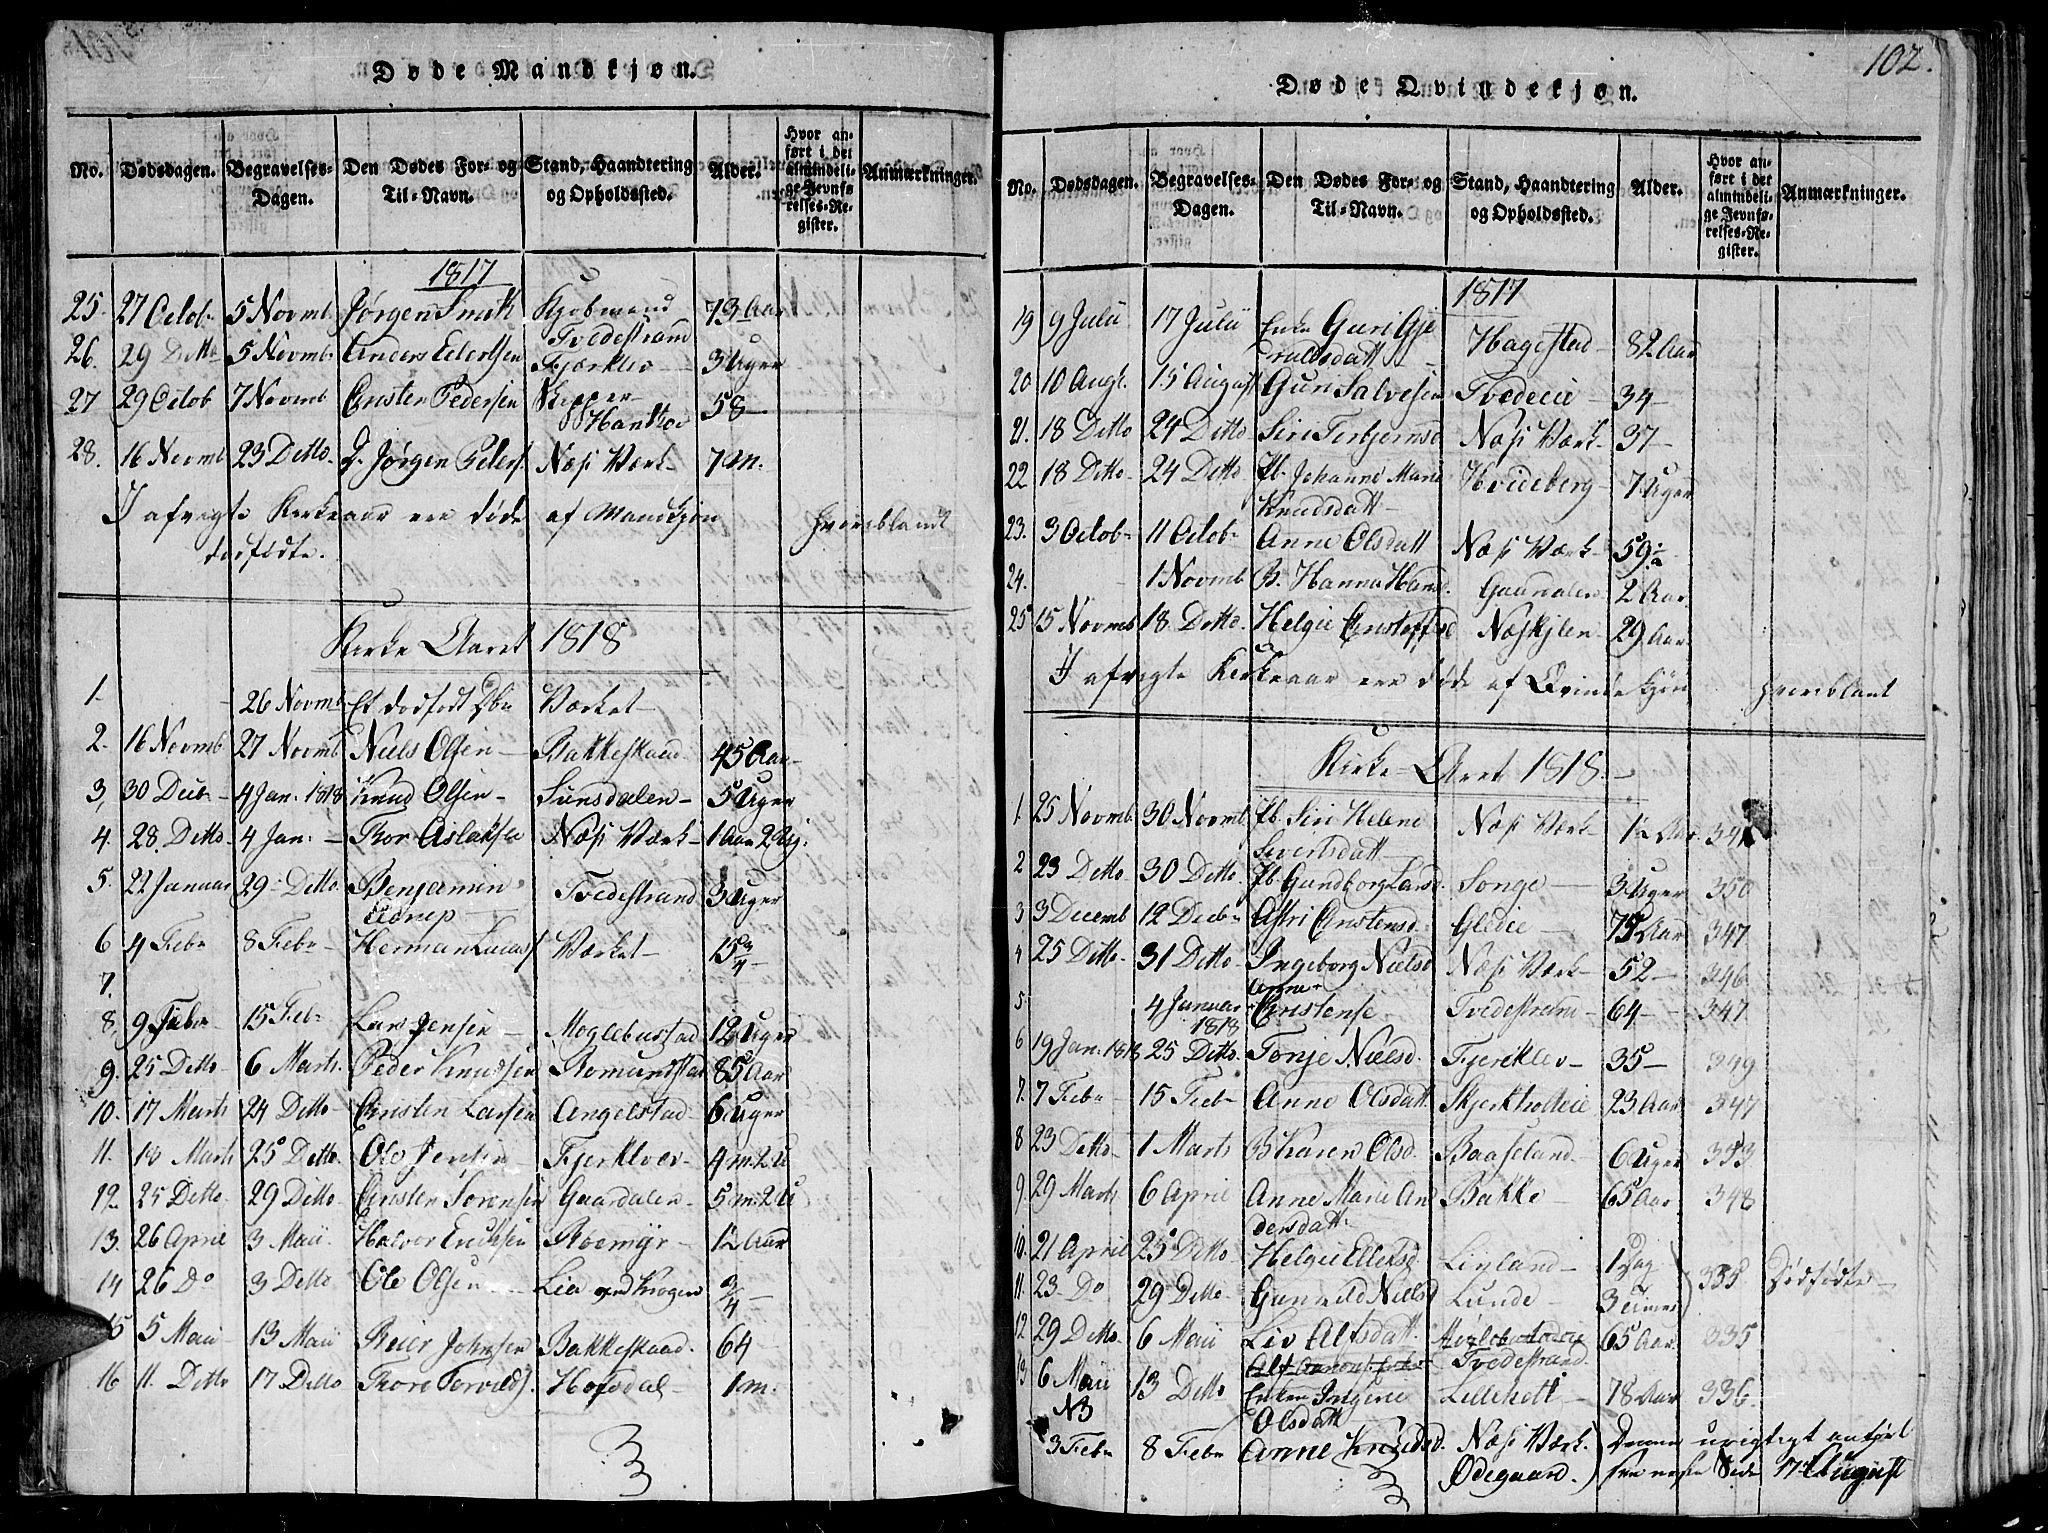 Døde Mandkjøn.
No. Dødsdagen. Begravelses-Dagen. Den Dødes For- og Til-Navn. Stand, Haandtering og Opholdssted. Alder. Hvor anført i det almindelige Jevnførelses-Register. Anmærkninger.
1817
25. 27 Octob- 5 Novmb Jørgen Smith Kjøbmand Tvedestrand 73 Aar
26. 29 Ditto 5 Novmb- Anders Eilertsen Fjærklev 3 Uger
27 29 Octob 7 Novmb Christen Pedersen Skipper Hantho 58-
28. 16 Novmb 23 Ditto- Jørgen Peders. Næss Værk- 7 m.
I afvigte Kirkeaar ere døde af Mandkjøn hvoriblandt
dødfødte.
Kirke Aaret 1818
1- 26 Novmb- Et dødfødt Værket-
2. 16 Novmb 27 Novmb Niels Olsen- Bakkeskaad 45 Aar-
3, 30 Decb- 4 Jan. 1818 Knud Olsen- Sunsdalen- 5 Uger
4. 28 Ditto- 4 Jan.- Thor Aslaksen Næss Værk- 1 Aar 2
5. 22 Januar 29 Ditto Benjamin Tvedestrand 3 Uger
6 4 Febr 8 Febr Herman Værket- 15 3/4-
7.
8, 9 Febr 15 Feb- Lars Jensen- Moglebustad 12 Uger
9. 25 Ditto- 6 Marts. Peder Knudsen Romundstad 85 Aar
10. 17 Marts 24 Ditto Christen Larsen Angelstad- 6 Uger
11. 18 Marts 25 Ditto. Ole Jensen Fjerklev- 4 m. 2 U
12- 25 Ditto. 29 Ditto- Christen Sørensen Gaardalen- 5 m 2 U
13. 26 April 3 Maii Halvor Erichsen Roemyr- 12 Aar
14 26 Do 3 Ditto Ole Olsen Lia ved Krogen 3/4-
15 5 Maii- 13 Maii Reier Johnsen Bakkeskaad. 64-
16 11. Ditto 17 Ditto Thore Torvalds. Hofsdal- 1 m.
102.
Døde Qvindekjøn.
No. Dødsdagen. Begravelses-Dagen. Den Dødes For- og Til-Navn. Stand, Haandtering og Opholdssted. Alder. Hvor anført i det almindelige Jevnførelses-Register. Anmærkninger.
1817
19 9 Julii 17 Julii Enke Guri Gje
ruldsdatt Hagestad- 82 Aar
20 10 Augt. 15 August Guri Salvesen Tvedeeie- 34-
21. 18 Ditto 24 Ditto Siri Terbjørnsd Næss Værk- 37-
22 18 Ditto- 24 Ditto Johanne Marie
Knudsdatt- Hvideberg- 7 Uger
23. 3 Octob- 11 Octob- Anne Olsdatt Næss Værk- 59-
24. 1 Novmb Hanna Hansd. Gaardalen- 2 Aar.
25 15 Novmb 18 Ditto. Helgie Christoffsd Næskilen- 29 Aar
I afvigte Kirkeaar ere døde af Qvindekjøn hvoriblant
Kirke-Aaret 1818-
1. 25 Novmb. 30 Novmb. Siri Helene
Sivertsdatt- Næss Værk 1/2 Aar
2 23 Ditto 30 Ditto. Gundborg Larsd. Songe- 3 Uger 350
3 3 Decemb 12 Decb- Astri Christensd. Gledee- 75 Aar 347
4 25 Ditto. 31 Ditto- Ingeborg Nielsd Næss Værk- 52- 346
5 4 Januar 1818 Anne Christense Tvedestrand- 64- 347
6 19 Jan. 1818 25 Ditto. Tonje Nielsd. Fjeriklev- 35- 349
7. 7 Febr 15 Febr Anne Olsdatt Skjerkholteie 23 Aar 347
8 23 Ditto- 1 Marts Karen Olsd. Baaseland- 6 Uger 353
9. 29 Marts 6 April Anne Marie An
dersdatt- Bakke- 65 Aar. 348
10. 21 April 25 Ditto Helgie Ellefsd. Linland- 1 Dag
11. 23- Do 29 Ditto- Gunnild Nielsd Lunde- 3 timer 335 Dødfødte-
12 29 Ditto- 6 Maii Liv Alfsdatt. Tvedestrand. 65 Aar. 335
13 6 Maii 13 Ditto Enken Ingerie
Olsdatt Lilleholt 78 Aar 336
NB
3 Febr 8 Febr Anne Knudsd. Næss Værk.
Ødegaard.) Denne urigtigt anført
see næste Side 17 August